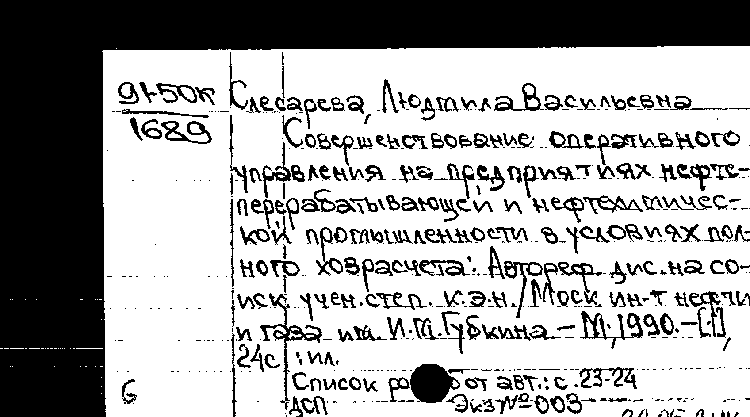 91-50к Слесарева, Людмила Васильевна
1689 Совершенствование оперативного
управления на предприятиях нефте-
перерабатывающей и нефтехимичес-
кой промышленности в условиях пол-
ного хозрасчета: Автореф. дис. на со-
иск. учен. степ. к.э.н. / Моск ин-т нефти
и газа им. И.М. Губкина – М., 1990. – [1],
24с. : ил.
Список работ авт.: с. 23-24
ДСП Экз № 003
6